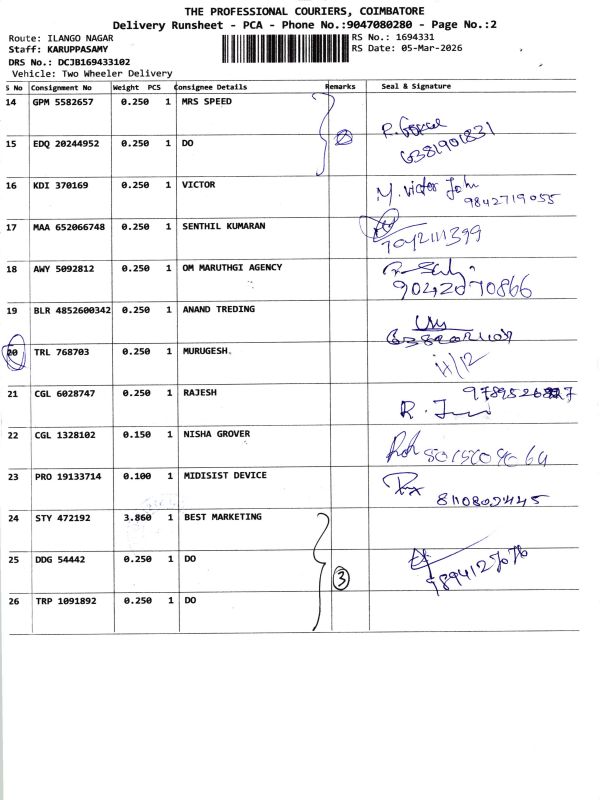 THE PROFESSIONAL COURIERS, COIMBATORE
Delivery Runsheet - PCA - Phone No.:9047080280 - Page No.:2
Route: ILANGO NAGAR RS No.: 1694331
Staff: KARUPPASAMY RS Date: 05-Mar-2026
DRS No.: DCJB169433102
Vehicle: Two Wheeler Delivery
S No Consignment No Weight PCS Consignee Details Remarks Seal & Signature
14 GPM 5582657 0.250 1 MRS SPEED
6381901831
15 EDQ 20244952 0.250 1 DO
16 KDI 370169 0.250 1 VICTOR M. Victor John
9842719055
17 MAA 652066748 0.250 1 SENTHIL KUMARAN
7042111399
18 AWY 5092812 0.250 1 OM MARUTHGI AGENCY
9042070866
19 BLR 4852600342 0.250 1 ANAND TREDING
20 TRL 768703 0.250 1 MURUGESH.
21 CGL 6028747 0.250 1 RAJESH
22 CGL 1328102 0.150 1 NISHA GROVER
23 PRO 19133714 0.100 1 MIDISIST DEVICE
24 STY 472192 3.860 1 BEST MARKETING
25 DDG 54442 0.250 1 DO
3
26 TRP 1091892 0.250 1 DO